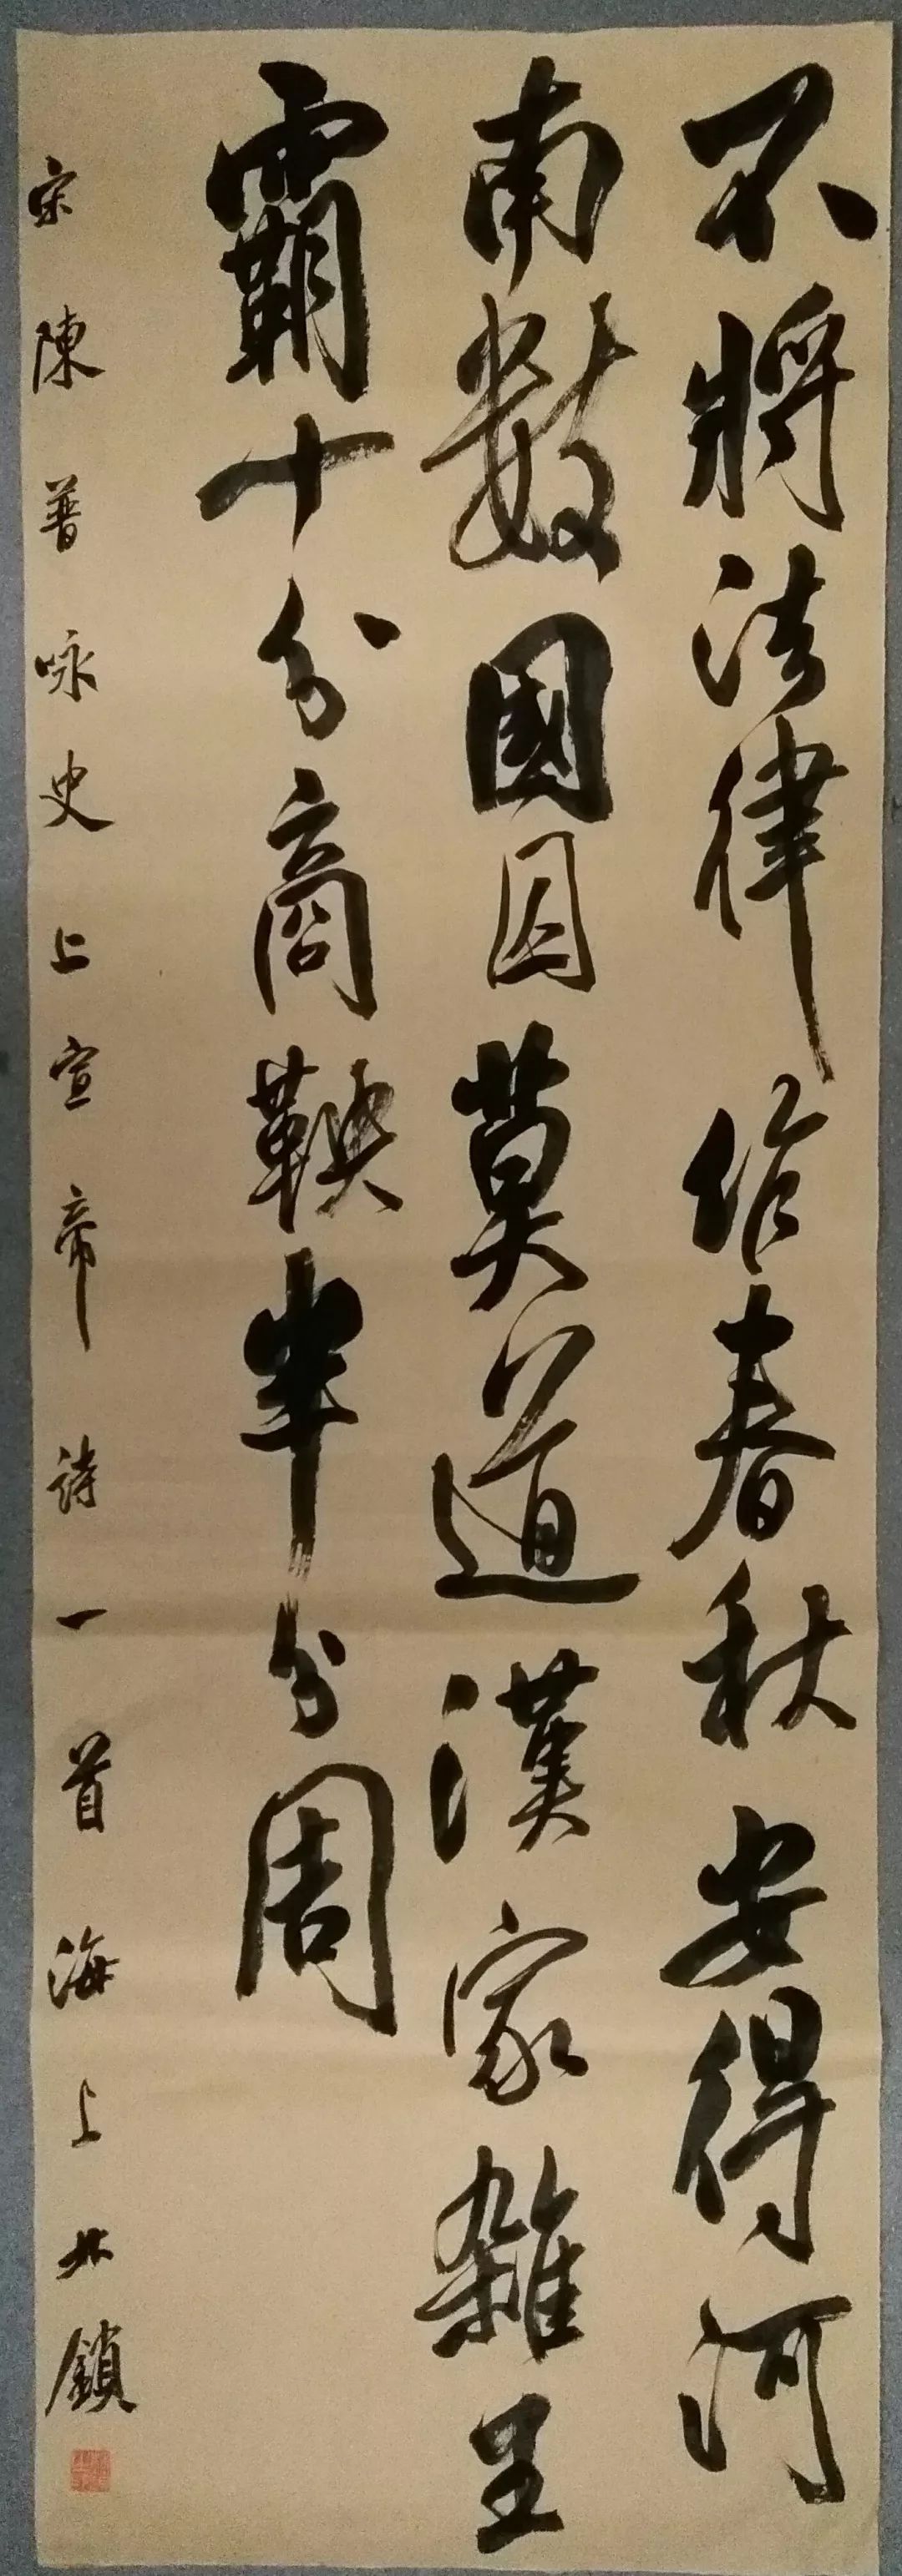 不將法律作春秋安得河
南數國囚莫道漢家雜王
霸十分商鞅半分周
宋陳普咏史上宣帝詩一首海上北鎖